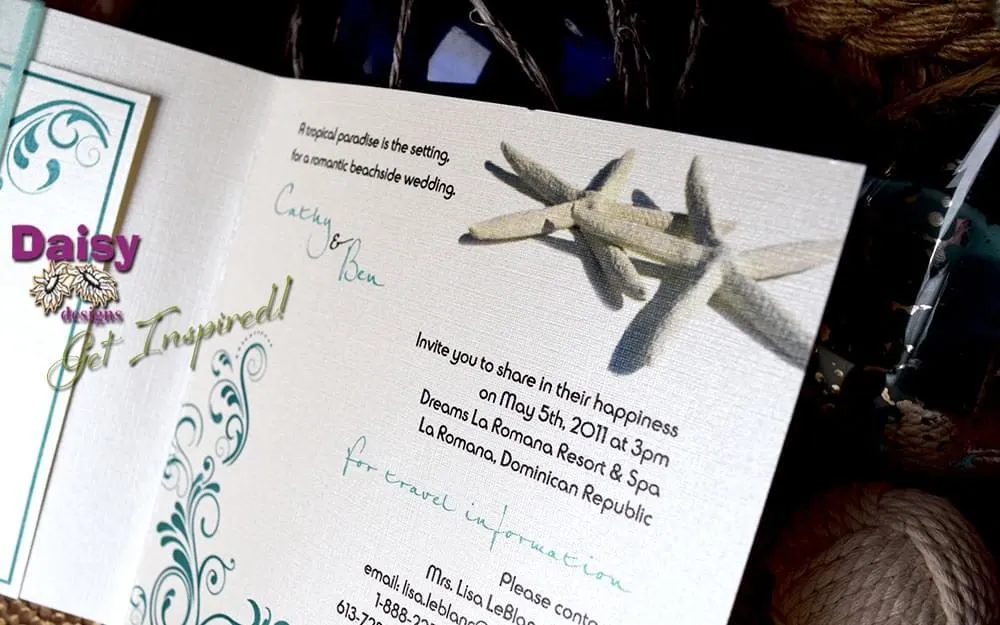 Daisy
designs
Get Inspired!
A tropical paradise is the setting,
for a romantic beachside wedding.
Cathy
&
Ben
Invite you to share in their happiness
on May 5th, 2011 at 3pm
Dreams La Romana Resort & Spa
La Romana, Dominican Republic
for travel information
Please
Mrs. Lisa
email: